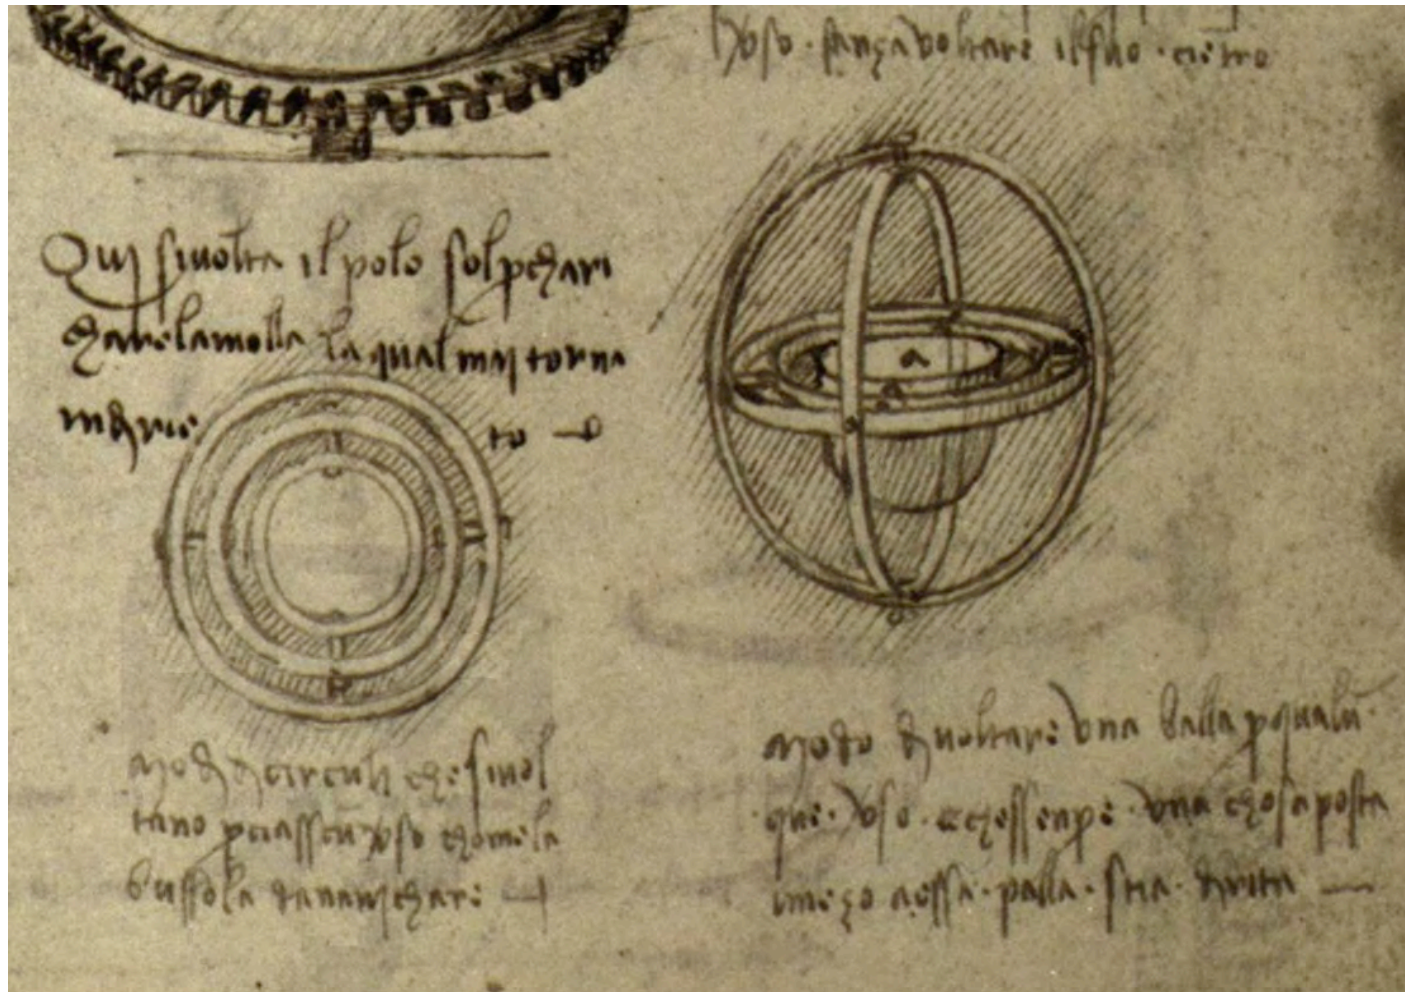 sanza voltare il suo · cientro
Qui si volta il polo sol p chari
chare la molla la qual maj torna
indrie to
a
modi di circuli che si vol
tano p ciasscu vso chome la
bussola da navichare
modo di voltare vna balla p qualu
que · vso · acche ssenpe · vna chosa posta
imezo a essa · palla · stia · diritta